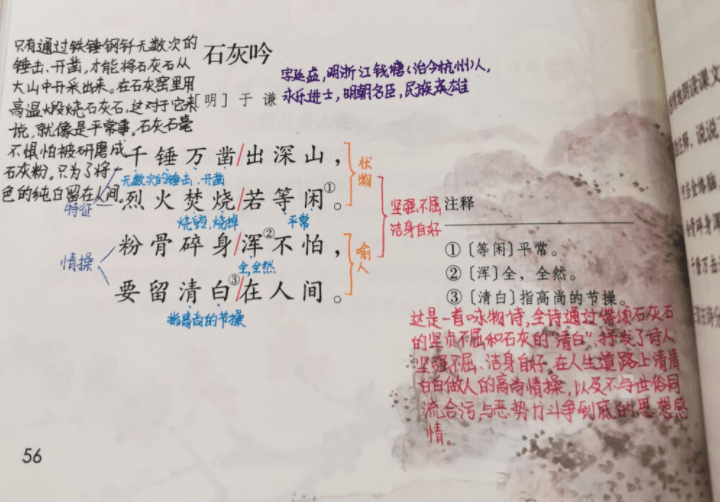 只有通过铁锤钢钎无数次的
锤击、开凿,才能将石灰石从
大山中开采出来。在石灰窑里用
高温火煅烧石灰石,这对于它来
说,就像是平常事。石灰石毫
不惧怕被研磨成
石灰粉。只为了将一
色的纯白留在人间。
石灰吟
[明] 于 谦
字廷益,明浙江钱塘(治今杭州)人,
永乐进士,明朝名臣,民族英雄
千锤万凿/出深山,
无数次的锤击、开凿
烈火焚烧/若等闲①。
烧毁,烧掉
平常
特征
状物
粉骨碎身/浑②不怕,
全,全然
情操
喻人
要留清白③/在人间。
指高尚的节操
坚强不屈
洁身自好
注释
①〔等闲〕平常。
②〔浑〕全,全然。
③〔清白〕指高尚的节操。
这是一首咏物诗,全诗通过赞颂石灰石
的坚贞不屈和石灰的“清白”,抒发了诗人
坚强不屈、洁身自好,在人生道路上清清
白白做人的高尚情操,以及不与世俗同
流合污,与恶势力斗争到底的思想感
情。
56